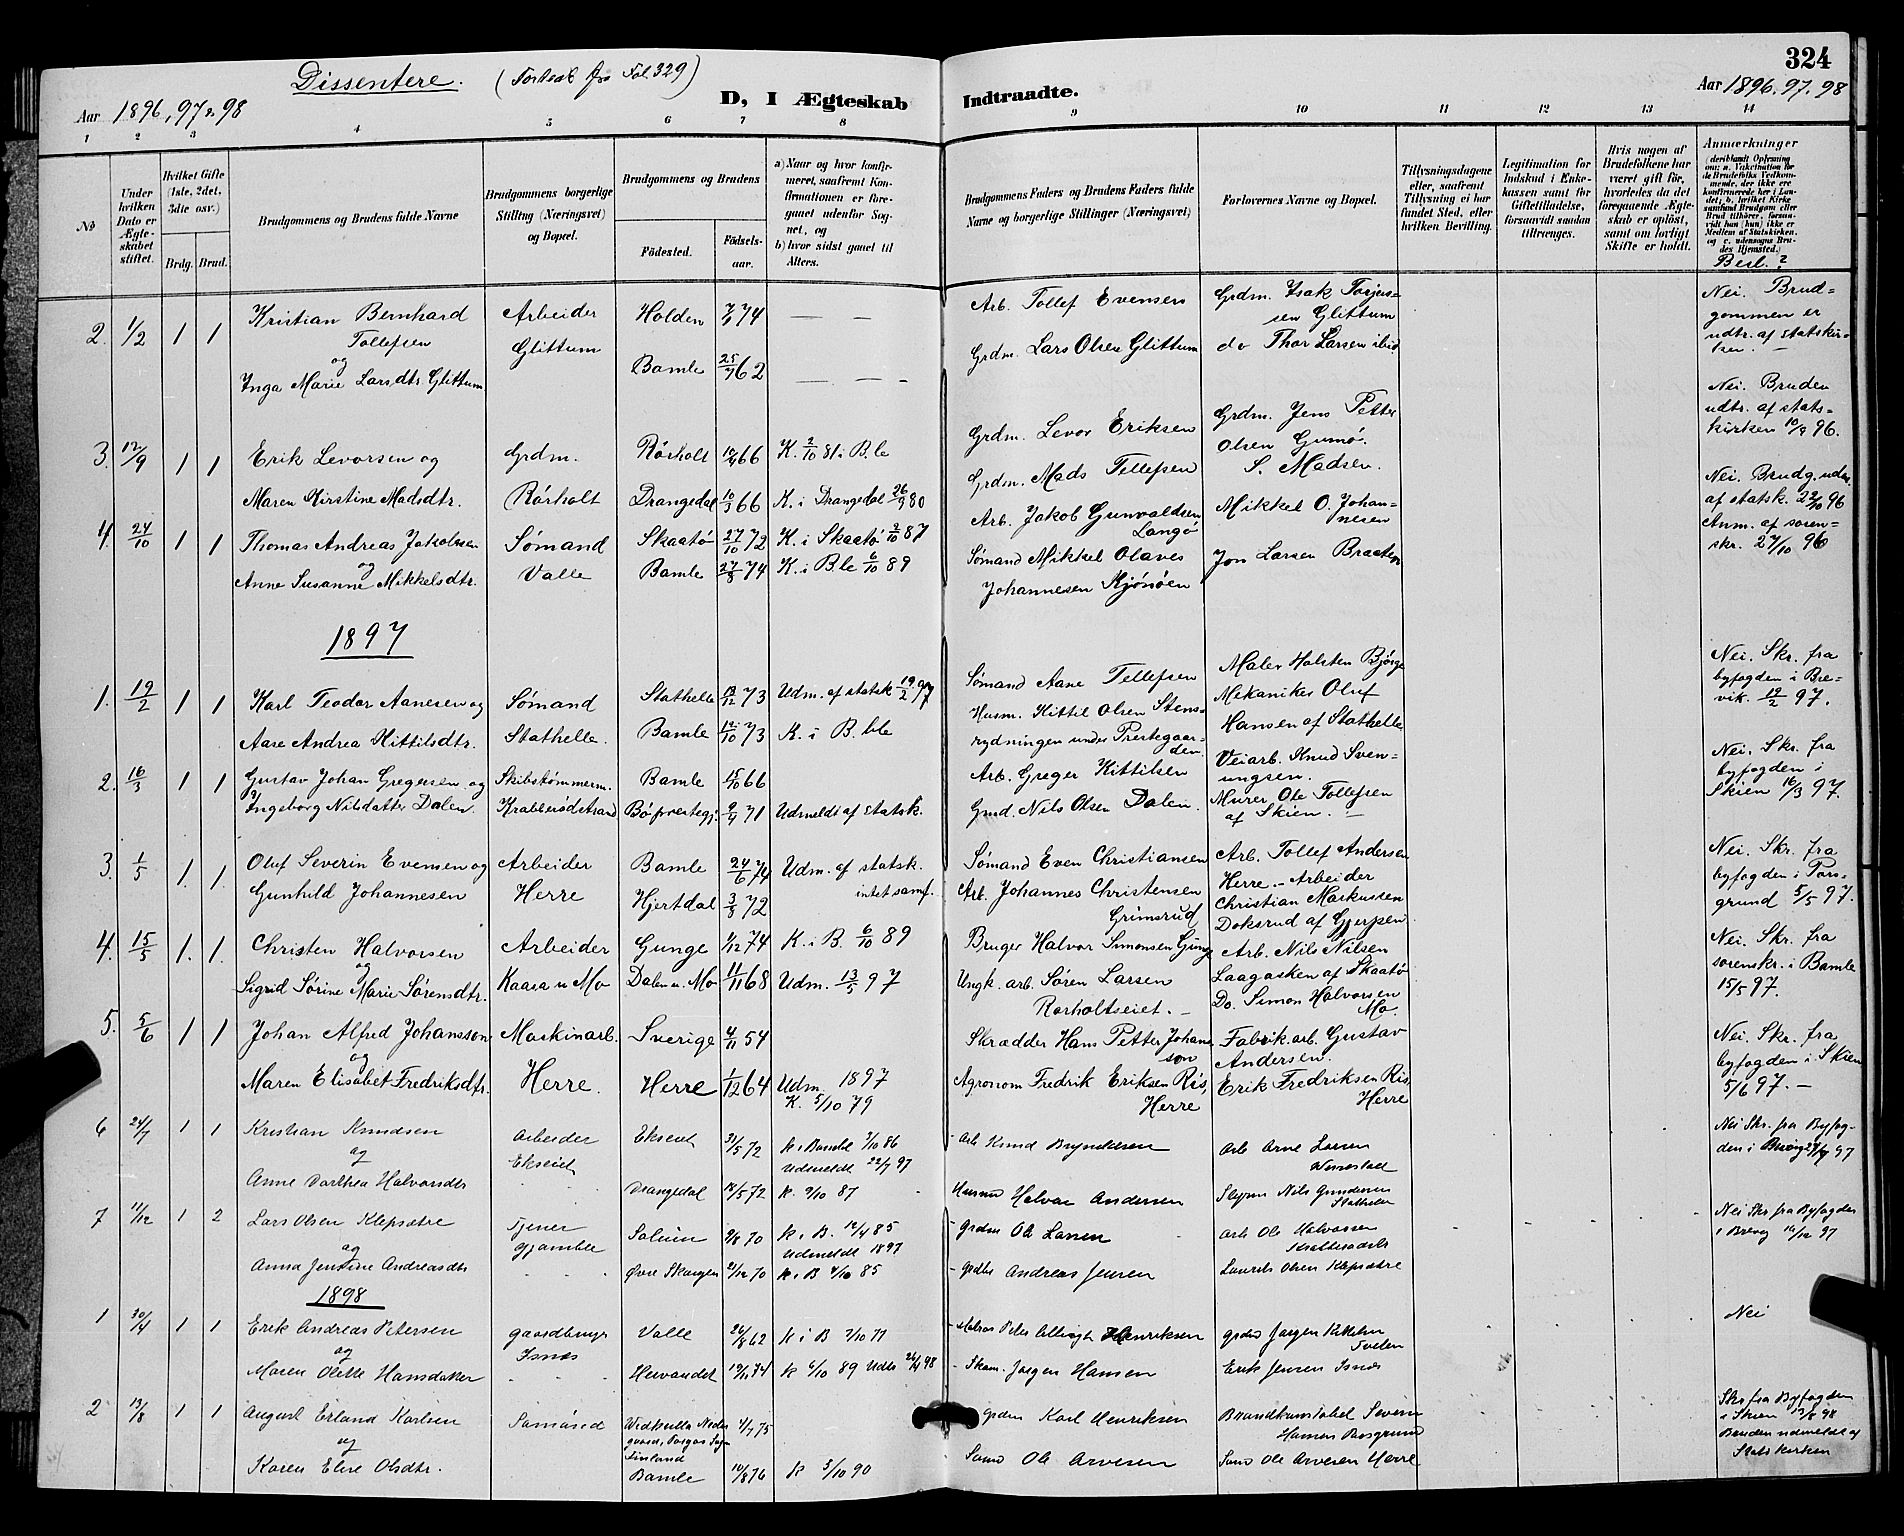 324
Dissentere. (Fortsat fra Fol 329)
Aar 1896, 97 & 98
D, I Ægteskab Indtraadte.
Aar 1896. 97. 98
1 2 3 4 5 6 7 8 9 10 11 12 13 14
No
Under hvilken Dato er Ægteskabet stiftet.
Hvilket Gifte (1ste, 2det, 3die osv.)
Brdg. Brud.
Brudgommens og Brudens fulde Navne
Brudgommens borgerlige Stilling (Næringsvei) og Bopæl.
Brudgommens og Brudens
Fødested.
Fødselsaar.
a) Naar og hvor konfirmeret, saafremt Konfirmationen er foregaaet udenfor Sognet, og
b) hvor sidst gaaet til Alters.
Brudgommens Faders og Brudens Faders fulde Navne og borgerlige Stillinger (Næringsvei)
Forlovernes Navne og Bopæl.
Tillysningsdagene eller, saafremt Tillysning ei har fundet Sted, efter hvilken Bevilling.
Legitimation for Indskud i Enkekassen samt for Giftetilladelse, forsaavidt saadan tiltrænges.
Hvis nogen af Brudefolkene har været gift før, hvorledes da det foregaaende Ægteskab er opløst, samt om lovligt Skifte er holdt.
Anmærkninger
(deriblandt Oplysning om: a. Vakcination for de Brudefolks Vedkommende, der ikke ere konfirmerede her i Landet; b. hvilket Kirkesamfund Brudgom eller Brud tilhører, forsaavidt han (hun) ikke er Medlem af Statskirken, og c. udensogns Brudes Hjemsted.)
Besl.?
2. 1/2 1 1 Kristian Bernhard Tollefsen og Arbeider Glittum Holden 7/1 74 — — Arb. Tollef Evensen Grdm. Isak Torjussen Glittum Nei. Brudgommen er udtr. af statskirken. —
Inga Marie Larsdtr. Glittum Bamle 25/7 62 — — Grdm. Lars Olsen Glittum do Thor Larsen ibid
3. 12/9 1 1 Erik Levorsen og Grdm. Rørholt 10/4 66 K. 2/10 81 i B.le Grdm. Levor Eriksen Grdm. Jens Petter Olsen Gumø. Nei. Bruden udtr. af statskirken 10/9 96.
Maren Kirstine Madsdtr. Rørholt Drangedal 10/3 66 K. i Drangedal 26/9 80 Grdm. Mads Tellefsen S. Madsen.
4. 24/10 1 1 Thomas Andreas Jakobsen og Sømand Skaatø 27/10 72 K. i Skaatø 2/10 87 Arb. Jakob Gunvaldsen Langø Mikkel O. Johannesen Nei. Brudg. udtr. af statsk. 22/10 96 Anm. af sorenskr. 24/10 96
Anne Susanne Mikkelsdtr. Valle Bamle 27/8 74 K. i B.le 6/10 89 Sømand Mikkel Olaves Johannesen Kjønøen Jon Larsen Braaten
1897
1. 19/2 1 1 Karl Teodor Aanesen og Sømand Stathelle 13/12 73 Udm. af statsk 19/2 97 Sømand Aane Tellefsen Maler Halsten Bjørge Nei. Skr. fra byfogden i Brevik. 19/2 97.
Aase Andrea Kittilsdtr. Stathelle. Bamle 12/10 73 K. i B.ble Husm. Kittil Olsen Stensrydningen under Prestegaarden Mekaniker Oluf Hansen af Stathelle
2. 16/3 1 1 Gustav Johan Gregersen og Skibstømmerm. Bamle 15/10 66 Arb. Greger Kittilsen Veiarb. Knud Svenungsen. Nei. Skr. fra byfogden i Skien 16/3 97.
Ingeborg Nilsdatter Dalen. Krabberødstrand Bø præstegj. 9/4 71 Udmeldt af statsk. Grd. Nils Olsen Dalen. Murer Ole Tollefsen af Skien. —
3. 1/5 1. 1. Oluf Severin Evensen og Arbeider Bamle 24/6 74 Udm. af statsk. intet samf. Sømand Even Christiansen Arb. Tollef Andersen Herre. – Arbeider Nei. Skr. fra byfogden i Porsgrund 5/5 97.
Gunhild Johannesen Herre Hjertdal 3/3 72 Arb. Johannes Christensen Grimsrud Christian Markussen Doksrud af Gjerpen
4. 15/5 1. 1. Christen Halvorsen og Arbeider Gunge 1/12 74 K. i B. 6/10 89 Bruger Halvor Simonsen Gunge Arb. Nils Nilsen Laagasken af Skaatø Nei. Skr. fra sorenskr. i Bamle 15/5 97.
Sigrid Sørine Marie Sørensdtr. Kaasa u Mo Dalen u. Mo 11/11 68 Udm. 13/5 97 Ungk. arb. Søren Larsen Rørholtseiet. — Do. Simon Halvorsen Mo.
5. 5/6 1 1 Johan Alfred Johansson og Maskinarb. Sverige 4/11 54 Skrædder Hans Petter Johansson Fabrik. arb. Gustav Andersen. Nei. Skr. fra byfogden i Skien 5/6 97. —
Maren Elisabet Fredriksdtr. Herre. Herre 1/12 64 Udm. 1897 K. 5/10 79 Agronom Fredrik Eriksen Ris, Herre Erik Fredriksen Ris, Herre
6 24/7 1 1 Kristian Knudsen og Arbeider Ekseiet Ekseiet 31/5 72 K i Bamble 3/10 86 Udmeldt 22/7 97 Arb Knud Bryndelsen Arb Arne Larsen Nei Skr. fra Byfogden i Brevig 24/7 97
Anne Dorthea Halvorsdtr Drangedal 18/5 72 K. 9/10 87 Husmd Halvor Andersen Nils Gundersen Stathelle
7 11/12 1 2 Lars Olsen Klepsætre og Tjener Gjømle Solum 9/8 70 K i B. 12/4 85 Udmeldt 1897 Grdm Ole Larsen Arb Ole Halvorsen Krabberødstr Nei Skr fra Byfogden i Brevig 10/12 97
Anna Jensine Andreasdtr Øvre Skougen 2/12 70 K i B 4/10 85 Grdbr Andreas Jensen Laurits Olsen Klepsætre
1898
1 30/4 1 1 Erik Andreas Petersen og Gaardbruger Isnes Valle 26/8 62 K i B 7/10 77 Henriksen Grdm Jørgen Kittelsen Tveten Nei
Maren Olette Hansdatter Hervandet 19/11 74 K 6/10 89 Udtr 26/4 98 Skom. Jørgen Hansen Erik Jensen Isnes
2 13/8 1 1 August Erland Karlsen og Sømand Finland 4/7 75 Grdm Karl Henriksen Brandkonstabel Severin Hansen Porsgrund Skr fra Byfogden i Skien 13/8 98 Bruden udmeldt af Statskirken
Karen Elise Olsdtr. Bamle 10/8 76 K 5/10 90 Sømd Ole Arvesen Sømd Ole Arvesen Herre